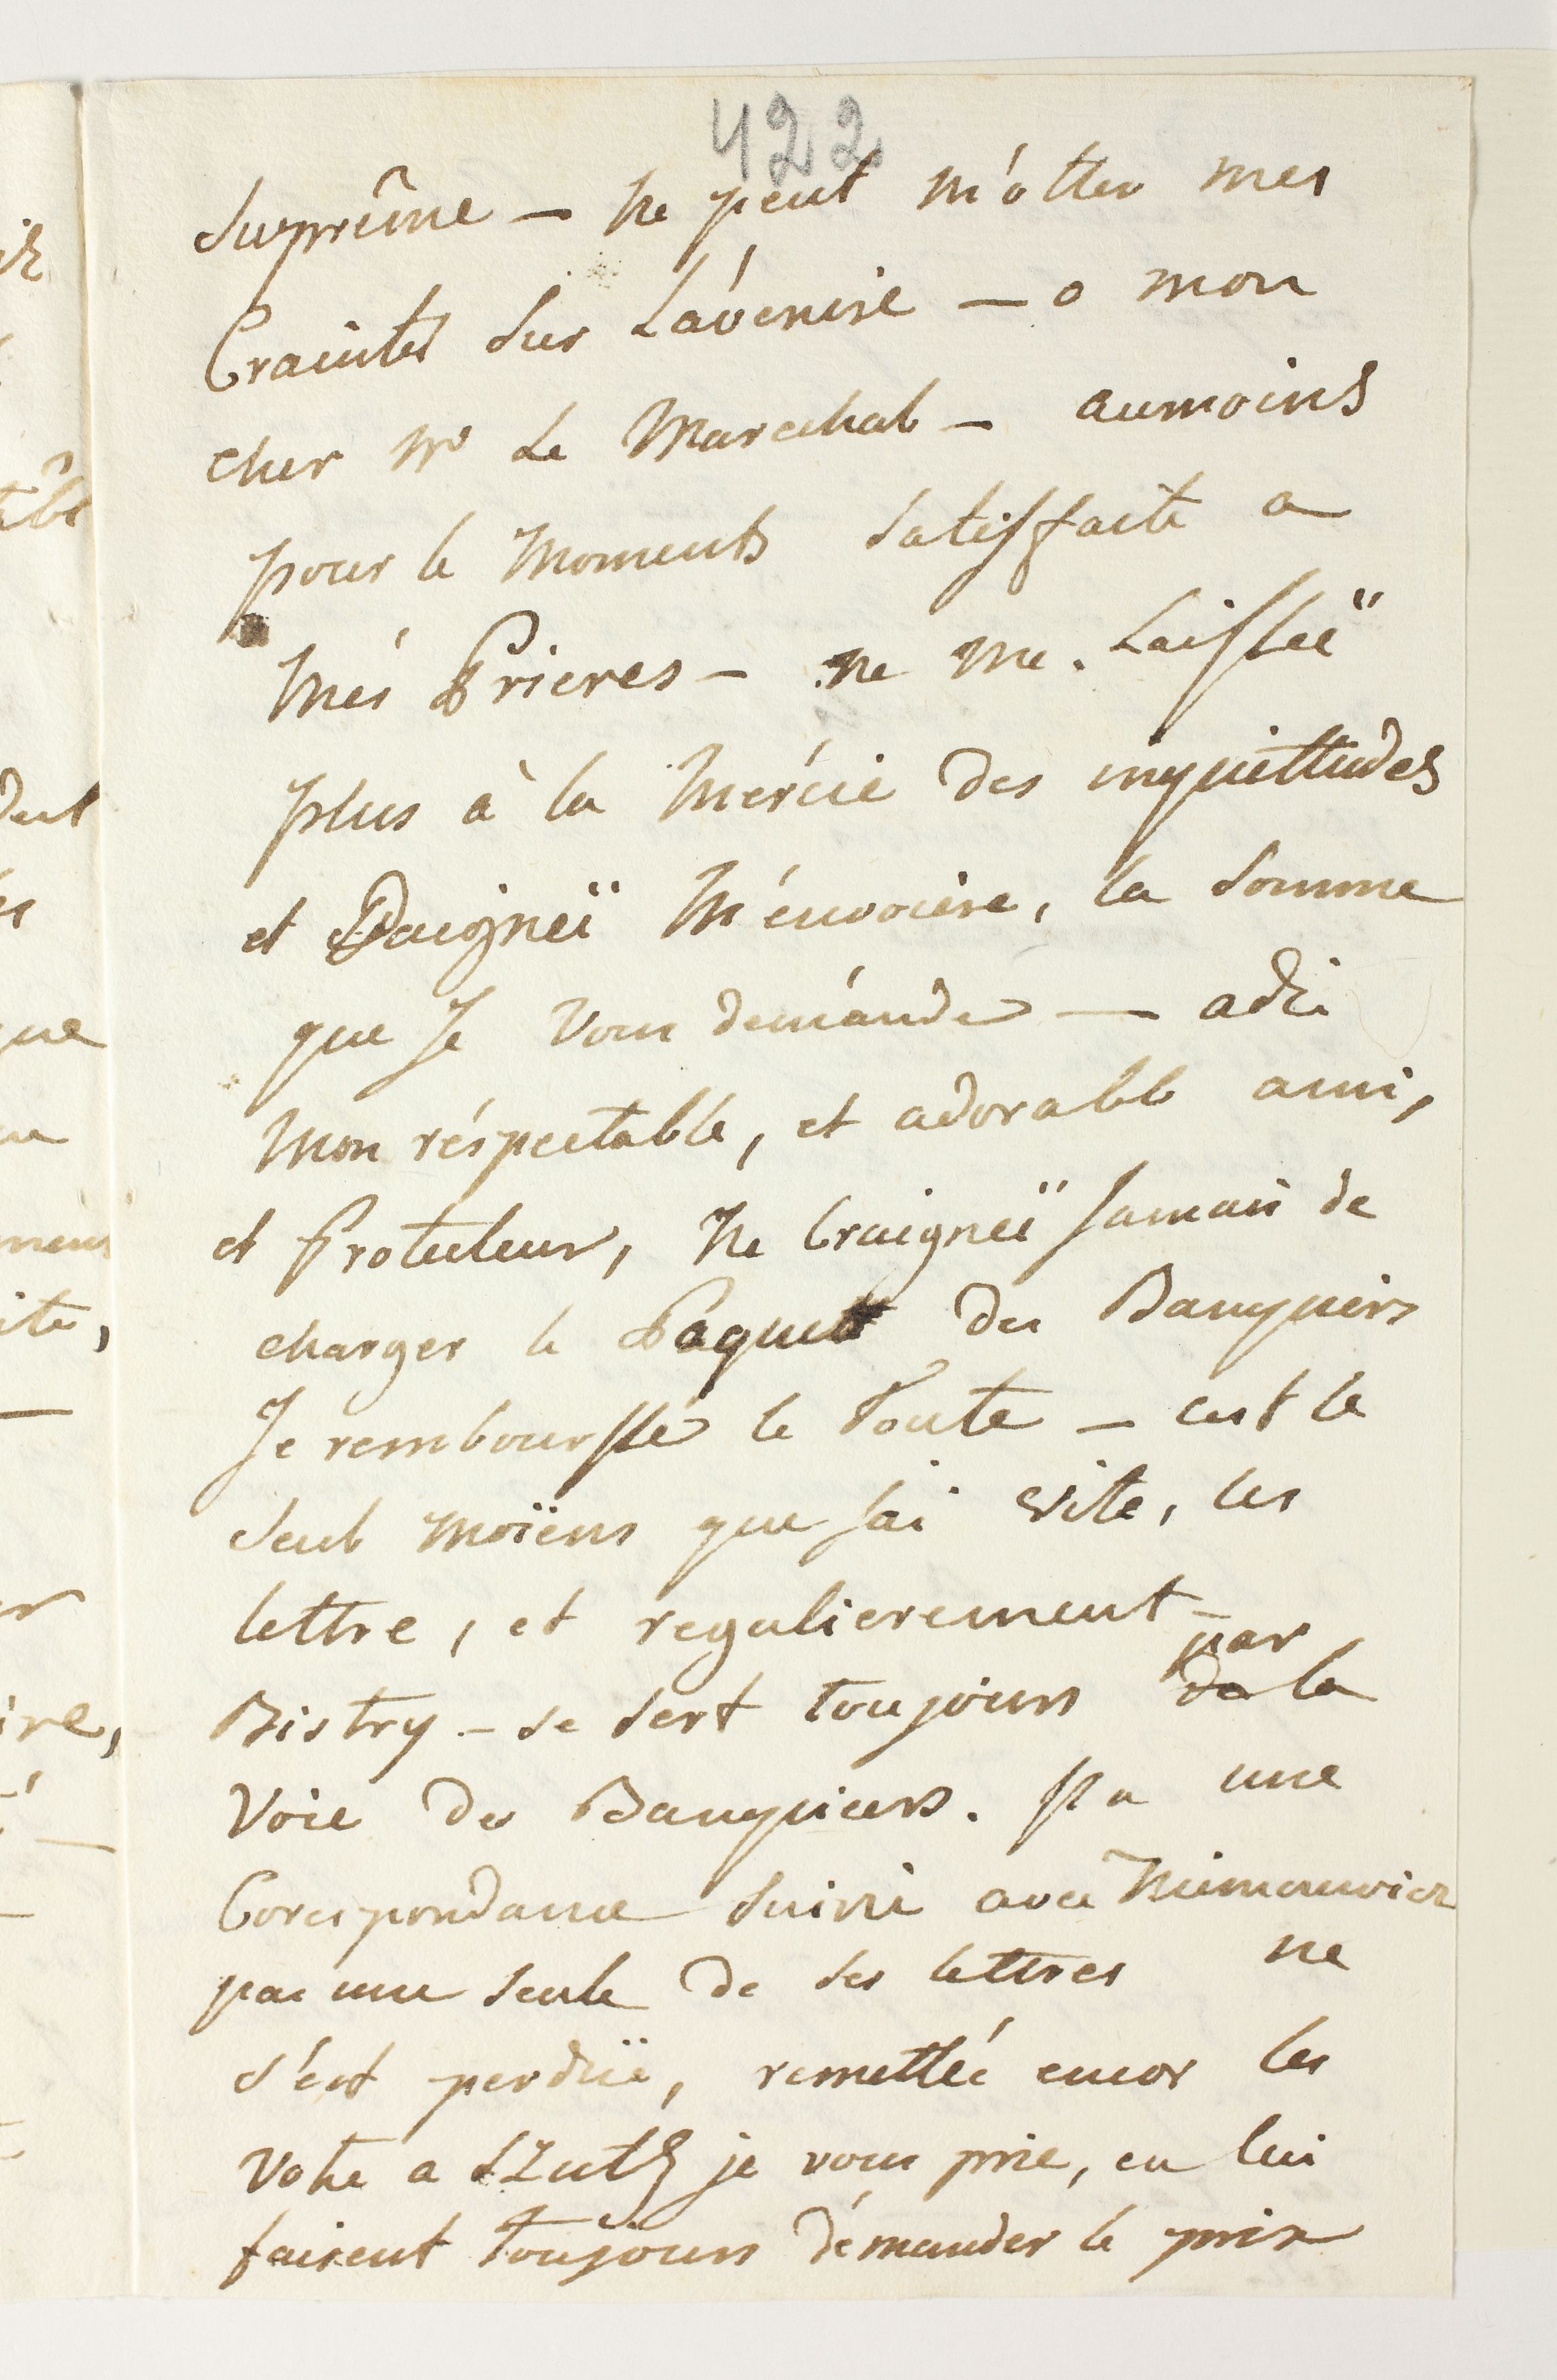 422
Suprême — ne peut m'otter mes
Craintes sur Lávenire — o mon
cher Mr Le Marechal — aumoins
pour le moments satisffaite a
més Prieres — ne me Laisseë
plus à la mércie des inquiettudes
et Daigneï m'énvoiere, la somme
que Je vous demánde — adei
mon réspectable, et adorable ami,
et Protecteur, ne Craigneï Jamais de
charger le Paquet des Banquiers
Je rembourssé le Toute — cest le
seul moïens que J'ai vite, les
lettre, et regulierement —
Bistry — se sert toujours par
de la
Voie des Banquiers. Il a une
Corespondance suivie avec Niemcewicz
pas une seule de ses lettres ne
s'ést perdüe, remettéé encor les
Votre a je vous prie, en lui
faisent toujours démander le prix